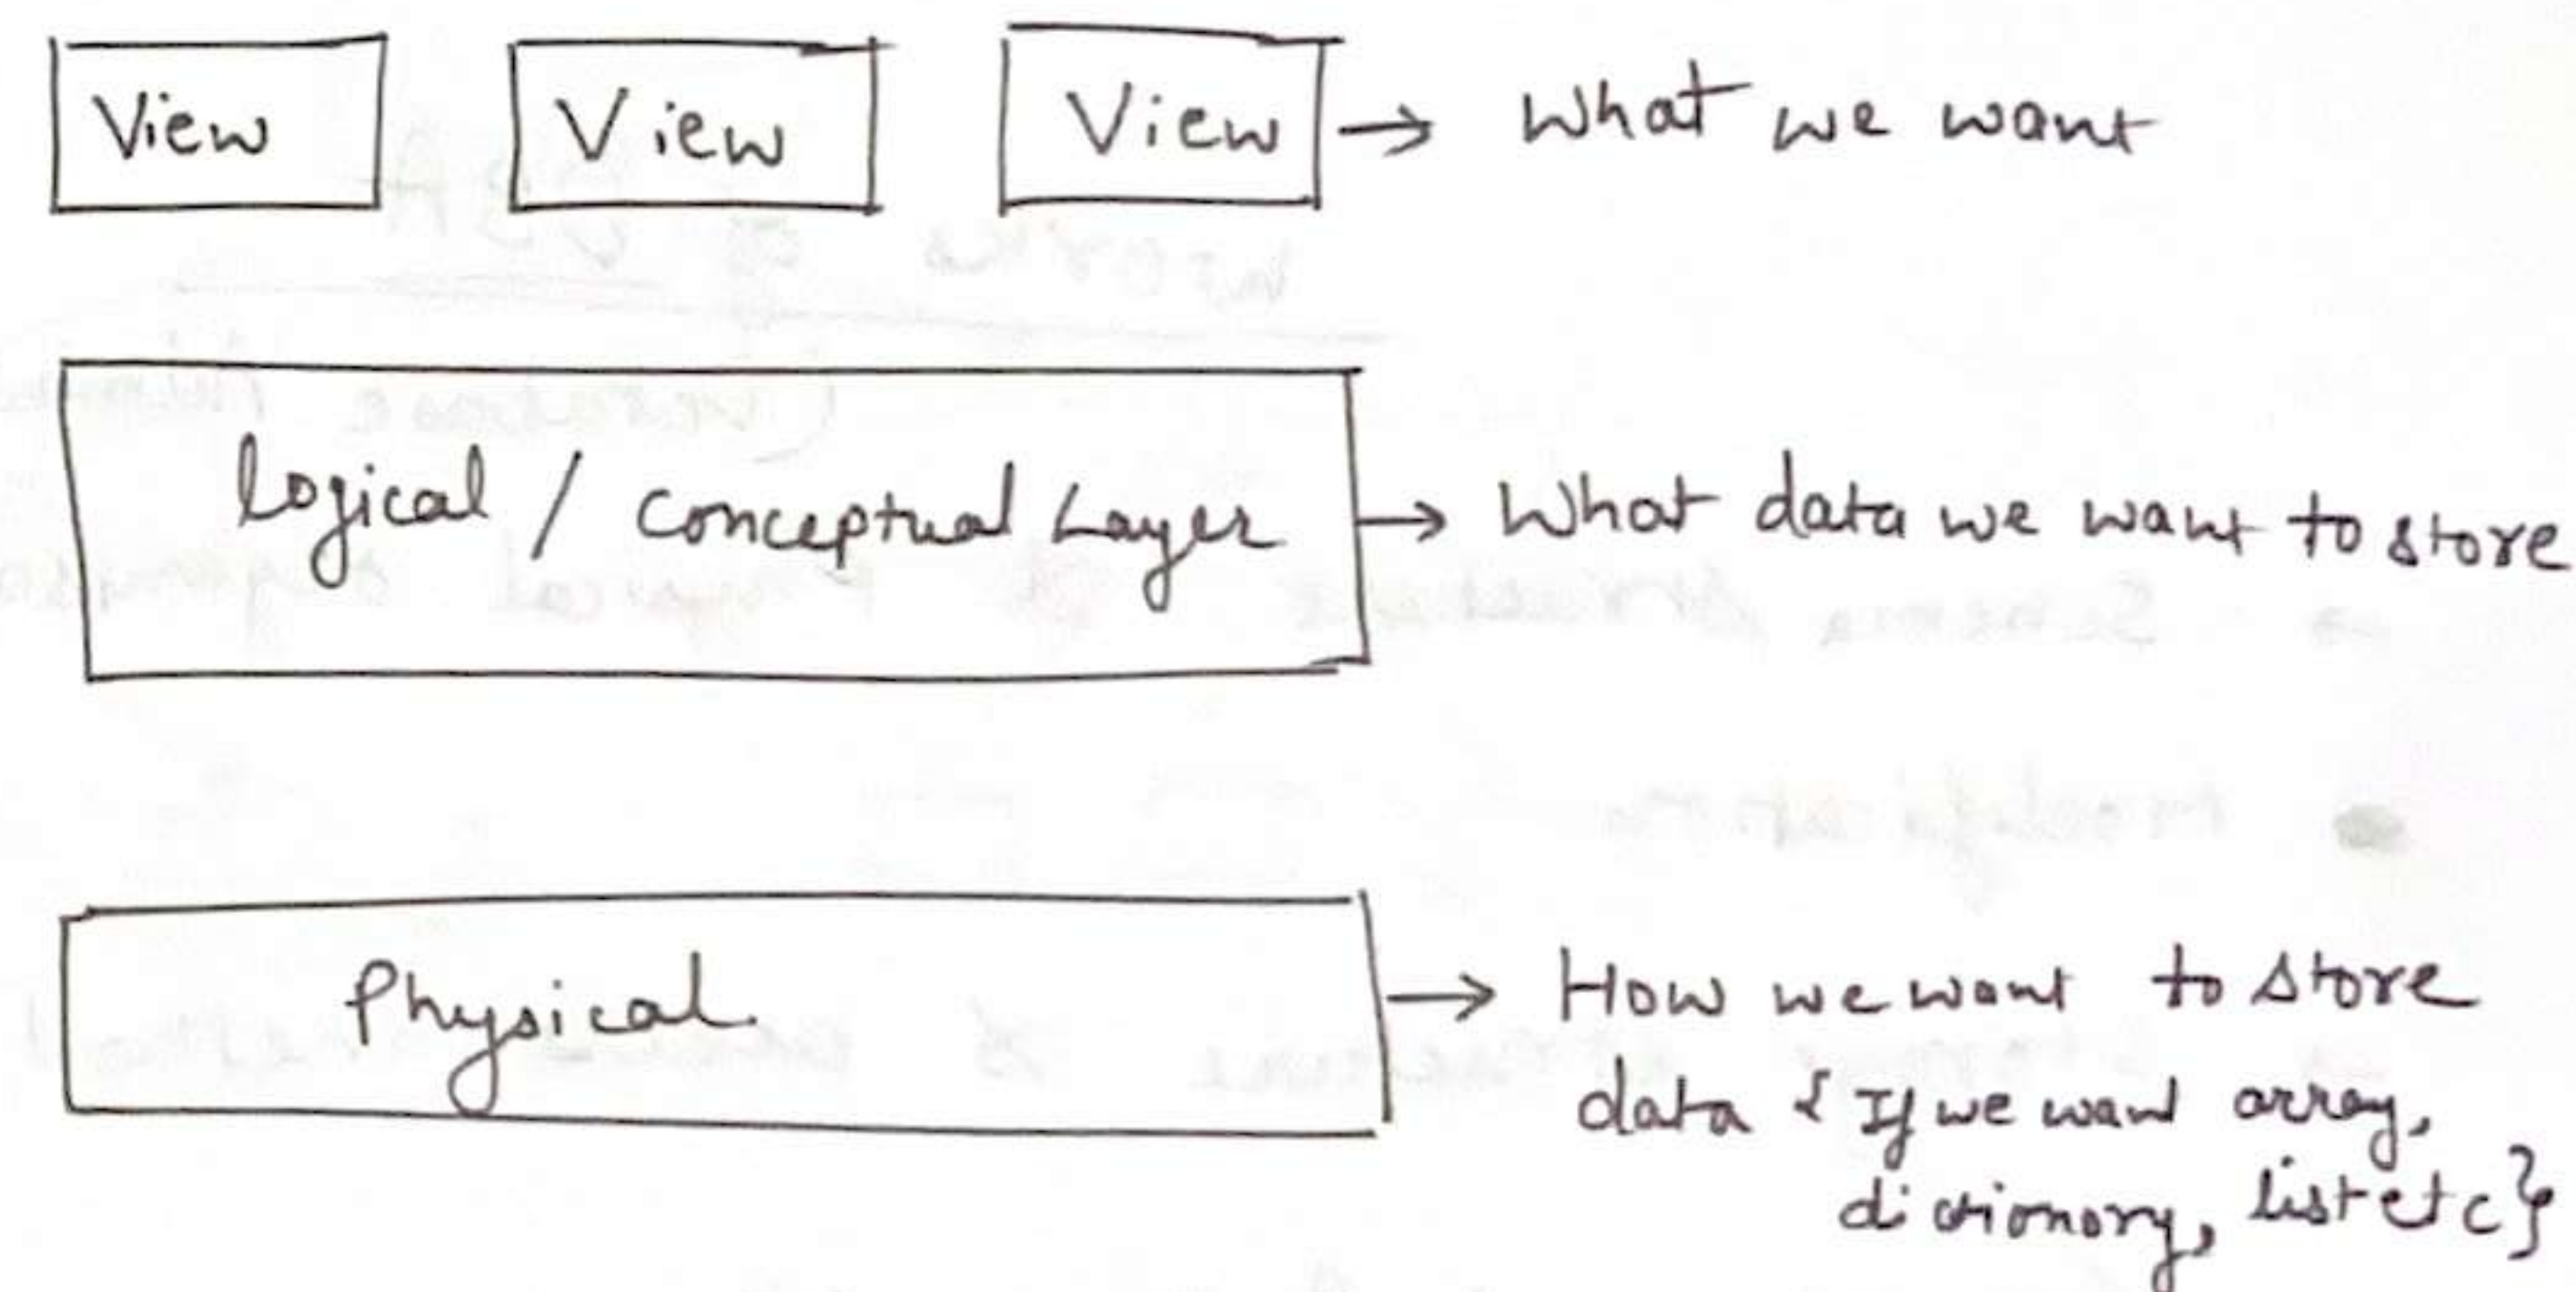 View View View → What we want
Logical / Conceptual Layer → What data we want to store
Physical → How we want to store
data { If we want array,
dictionary, list etc }